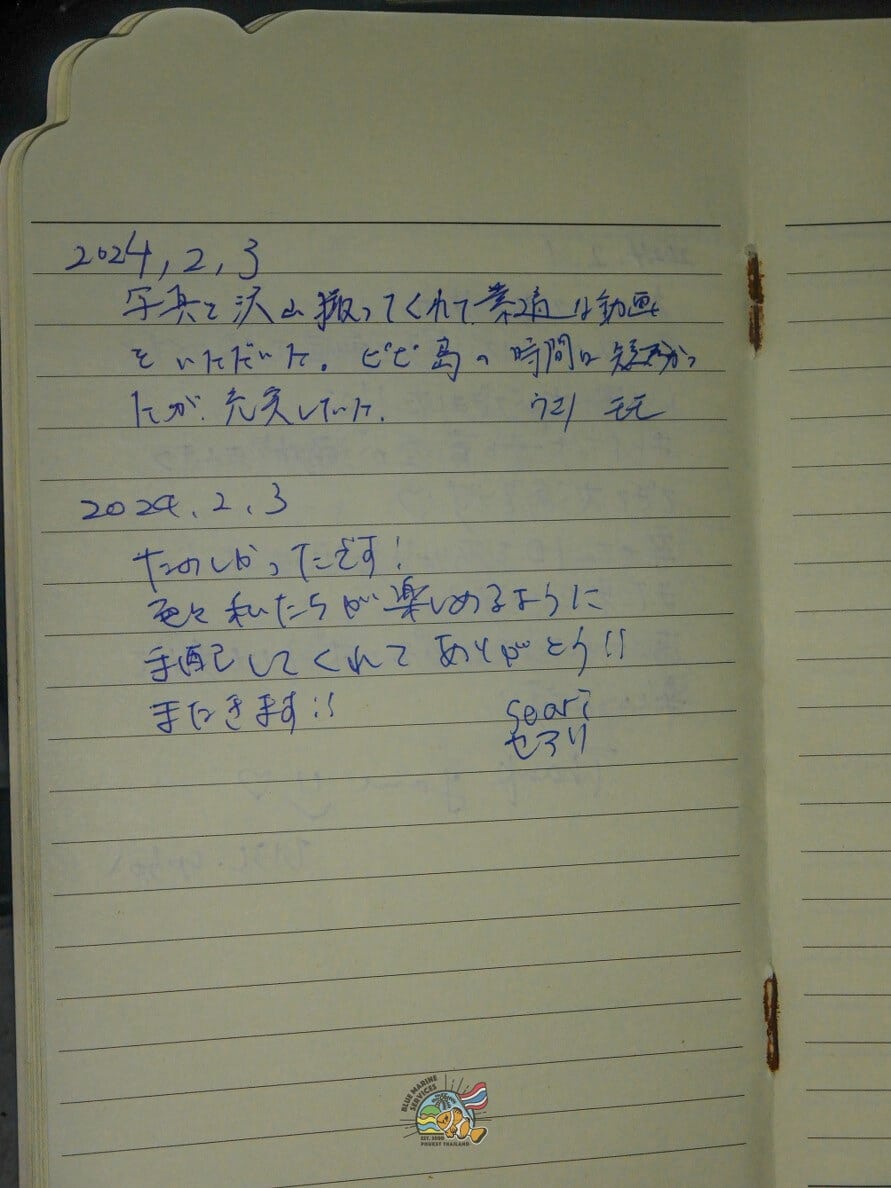 2024, 2, 3
写真を沢山撮ってくれて、素適な動画
をいただいた。ピピ島の時間は短かっ
たが、充実していた。 モモ
2024. 2. 3
たのしかったです!
色々私たちが楽しめるように
手配してくれてありがとう!!
またきます!!
Seari
セアリ
BLUE MARINE SERVICES
EST. 2000
PHUKET THAILAND